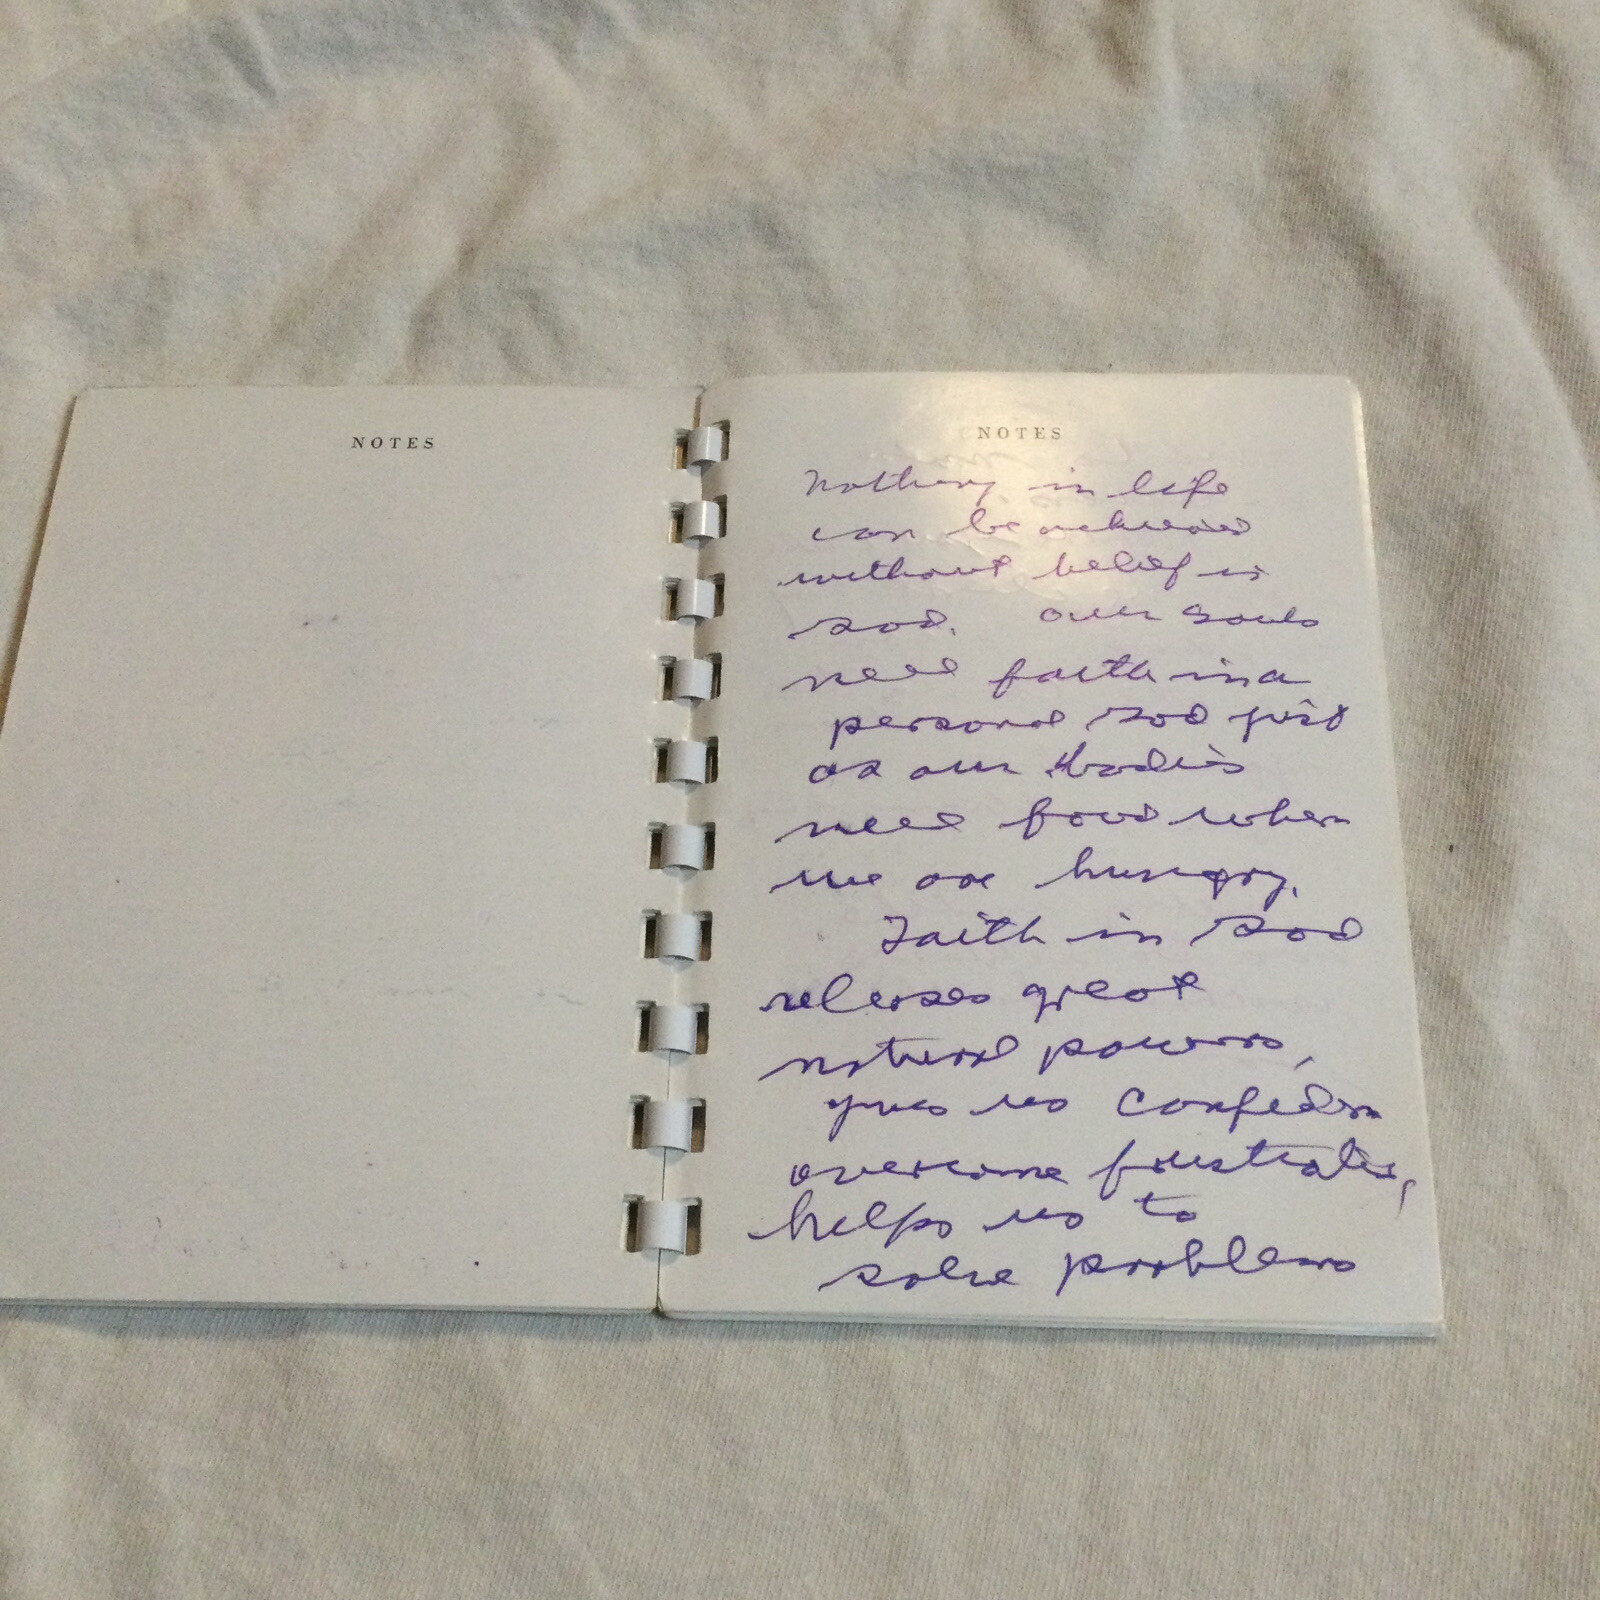 NOTES
NOTES
Nothing in life
can be achieved
without belief in
God. Our souls
need faith in a
personal God just
as our bodies
need food when
we are hungry.
Faith in God
releases great
natural powers,
gives us confiden
overcome frustration,
helps us to
solve problems